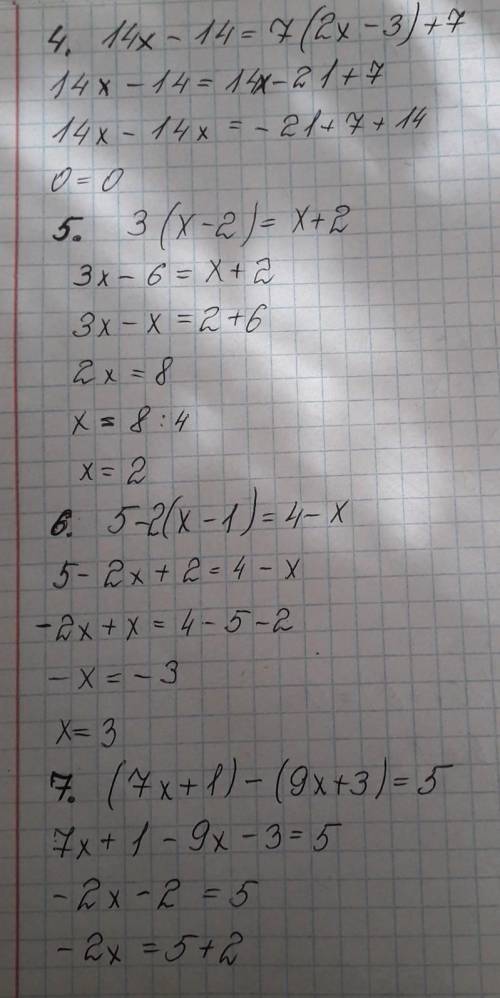 4. 14x - 14 = 7(2x - 3) + 7
14x - 14 = 14x - 21 + 7
14x - 14x = - 21 + 7 + 14
0 = 0
5. 3(x - 2) = x + 2
3x - 6 = x + 2
3x - x = 2 + 6
2x = 8
x = 8 : 4
x = 2
6. 5 - 2(x - 1) = 4 - x
5 - 2x + 2 = 4 - x
-2x + x = 4 - 5 - 2
- x = - 3
x = 3
7. (7x + 1) - (9x + 3) = 5
7x + 1 - 9x - 3 = 5
- 2x - 2 = 5
- 2x = 5 + 2